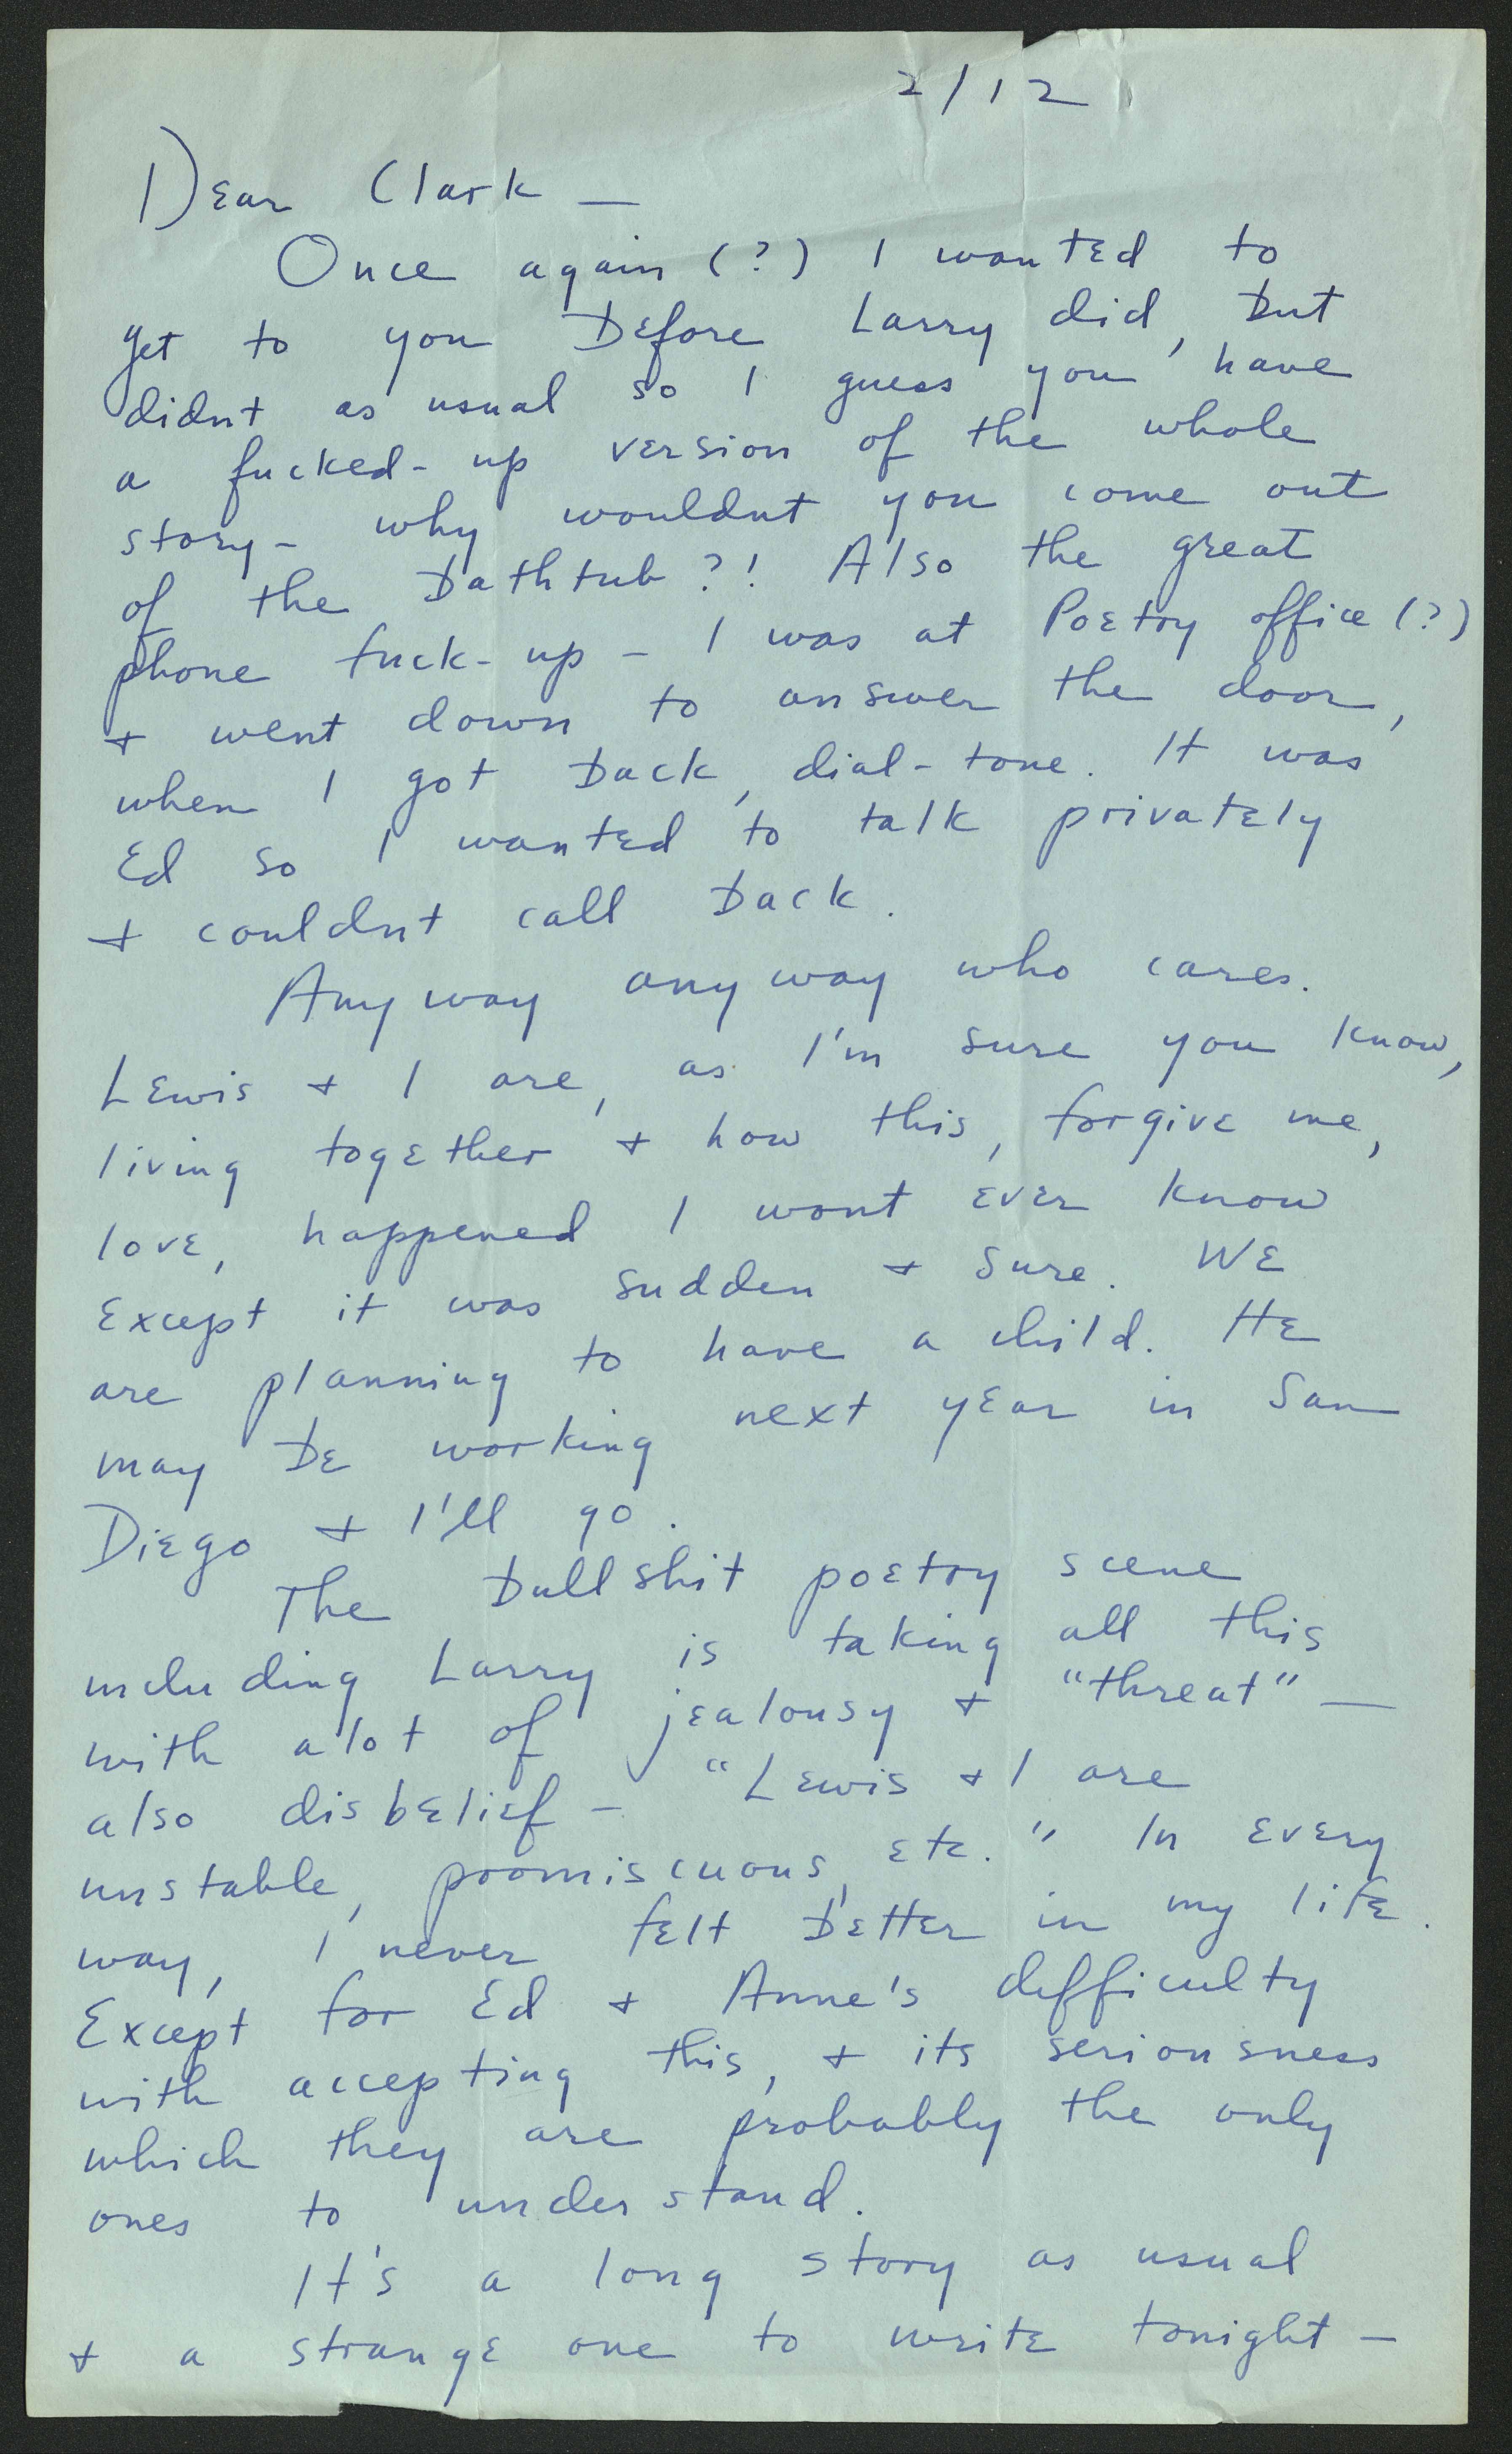 2/12
Dear Clark —
Once again (?) I wanted to
get to you before Larry did, but
didnt as usual so I guess you have
a fucked-up version of the whole
story - why wouldnt you come out
of the bathtub?! Also the great
phone fuck-up - I was at Poetry office (?)
+ went down to answer the door,
when I got back, dial-tone. It was
Ed so I wanted to talk privately
+ couldnt call back.
Anyway anyway who cares.
Lewis + I are, as I'm sure you know,
living together + how this, forgive me,
love, happened I wont ever know
except it was sudden + sure. We
are planning to have a child. He
may be working next year in San
Diego + I'll go.
The bullshit poetry scene
including Larry is taking all this
with alot of jealousy + "threat" —
also disbelief - "Lewis + I are
unstable, promiscuous, etc." In every
way, I never felt better in my life.
Except for Ed + Anne's difficulty
with accepting this, + its seriousness
which they are probably the only
ones to understand.
It's a long story as usual
+ a strange one to write tonight —